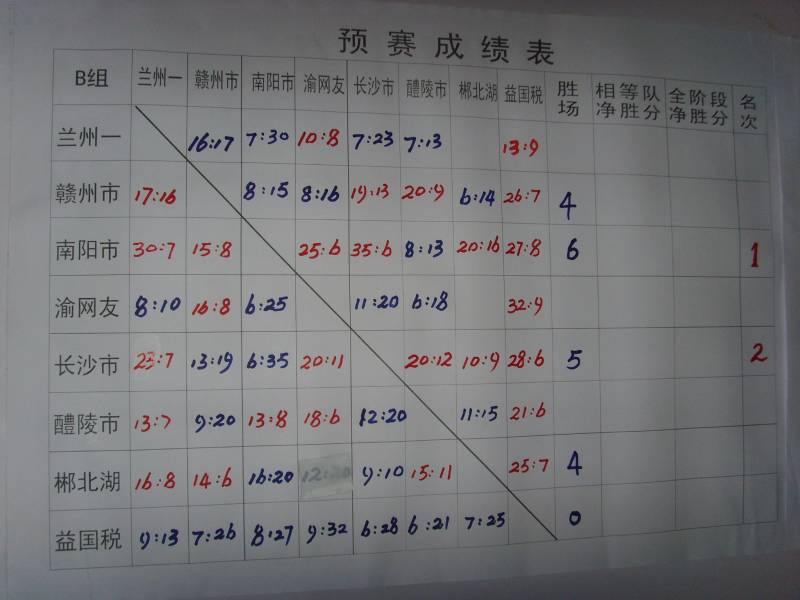 预赛成绩表
B组 兰州一 赣州市 南阳市 渝网友 长沙市 醴陵市 郴北湖 益国税 胜场 相等队净胜分 全阶段净胜分 名次
兰州一 16:17 7:30 10:8 7:23 7:13 13:9
赣州市 17:16 8:15 8:16 19:13 20:9 6:14 26:7 4
南阳市 30:7 15:8 25:6 35:6 8:13 20:16 27:8 6 1
渝网友 8:10 16:8 6:25 11:20 6:18 32:9
长沙市 23:7 13:19 6:35 20:11 20:12 10:9 28:6 5 2
醴陵市 13:7 9:20 13:8 18:6 12:20 11:15 21:6
郴北湖 16:8 14:6 16:20 12:20 9:10 15:11 25:7 4
益国税 9:13 7:26 8:27 9:32 6:28 6:21 7:25 0